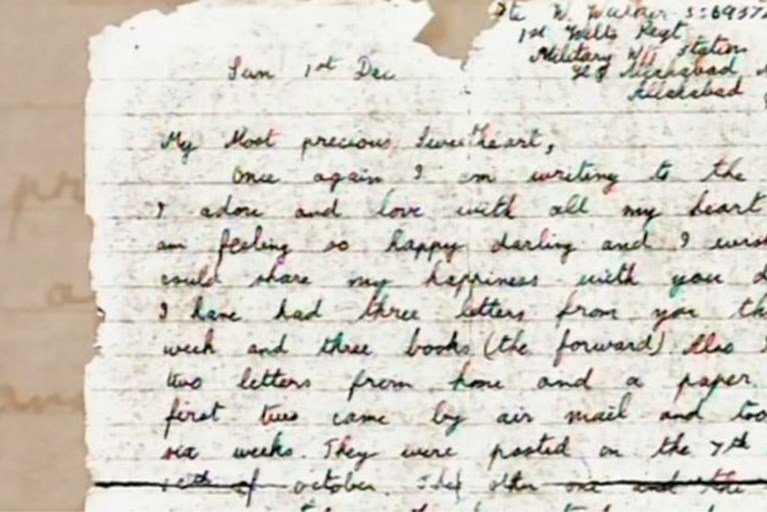 Pte W. Walker
1st Wilts Regt
Military W/T Station
Allahabad
Sun 1st Dec
My Most precious Sweetheart,
Once again I am writing to the
I adore and love with all my heart
am feeling so happy darling and I wish
could share my happiness with you
I have had three letters from you
week and three books (the forward) Also
two letters from home and a paper.
first two came by air mail and too
six weeks. They were posted on the 7th
of october. The other one and the